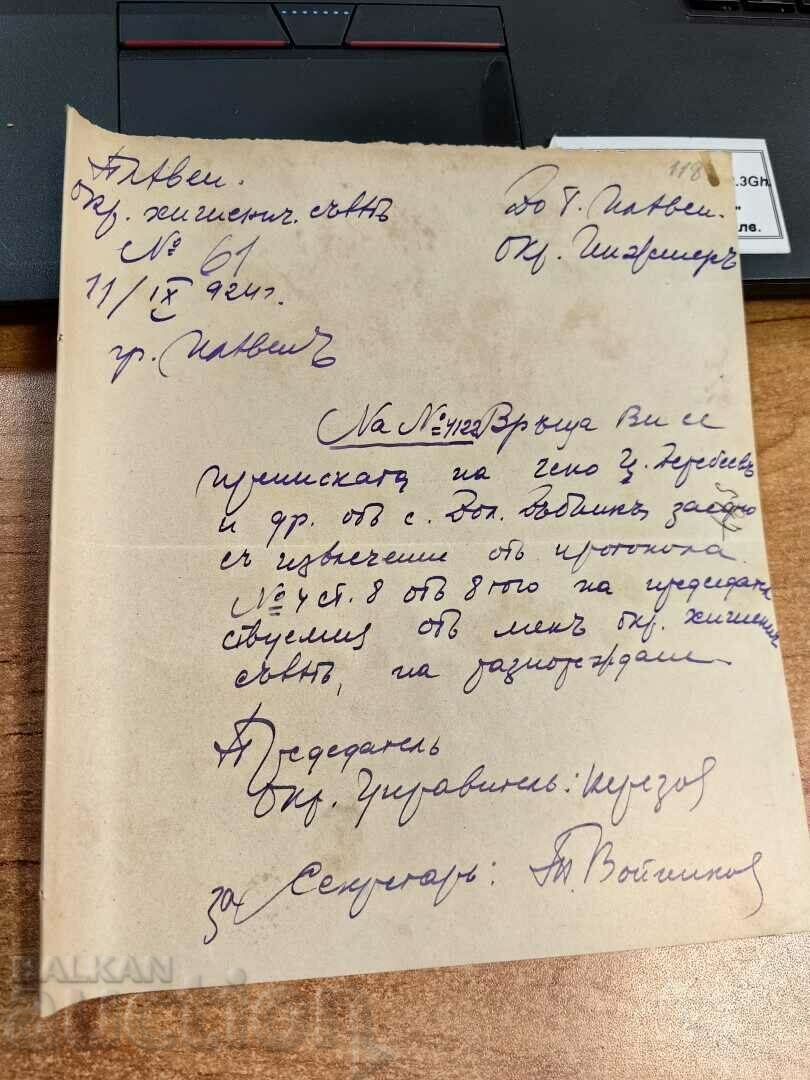 Плѣвен.
окр. хигиенич. съвѣтъ
№ 61
11/IX 924 г.
гр. Плѣвенъ
118
До Г. Плѣвен.
Окр. Инженеръ
На № 4122 Връща Ви се
преписката на Гено Ц. Деребеевъ
и др. отъ с. Дол. Дѫбникъ, заедно
съ извлечение отъ протокола
№ 4 ст. 8 отъ 8 того на председател
ствуемия отъ менъ окр. хигиенич.
съвѣтъ, на разпореждане
Председатель
Окр. Управитель:
за Секретарь: Войников
.3Gh.
лв.
BALKAN
auction